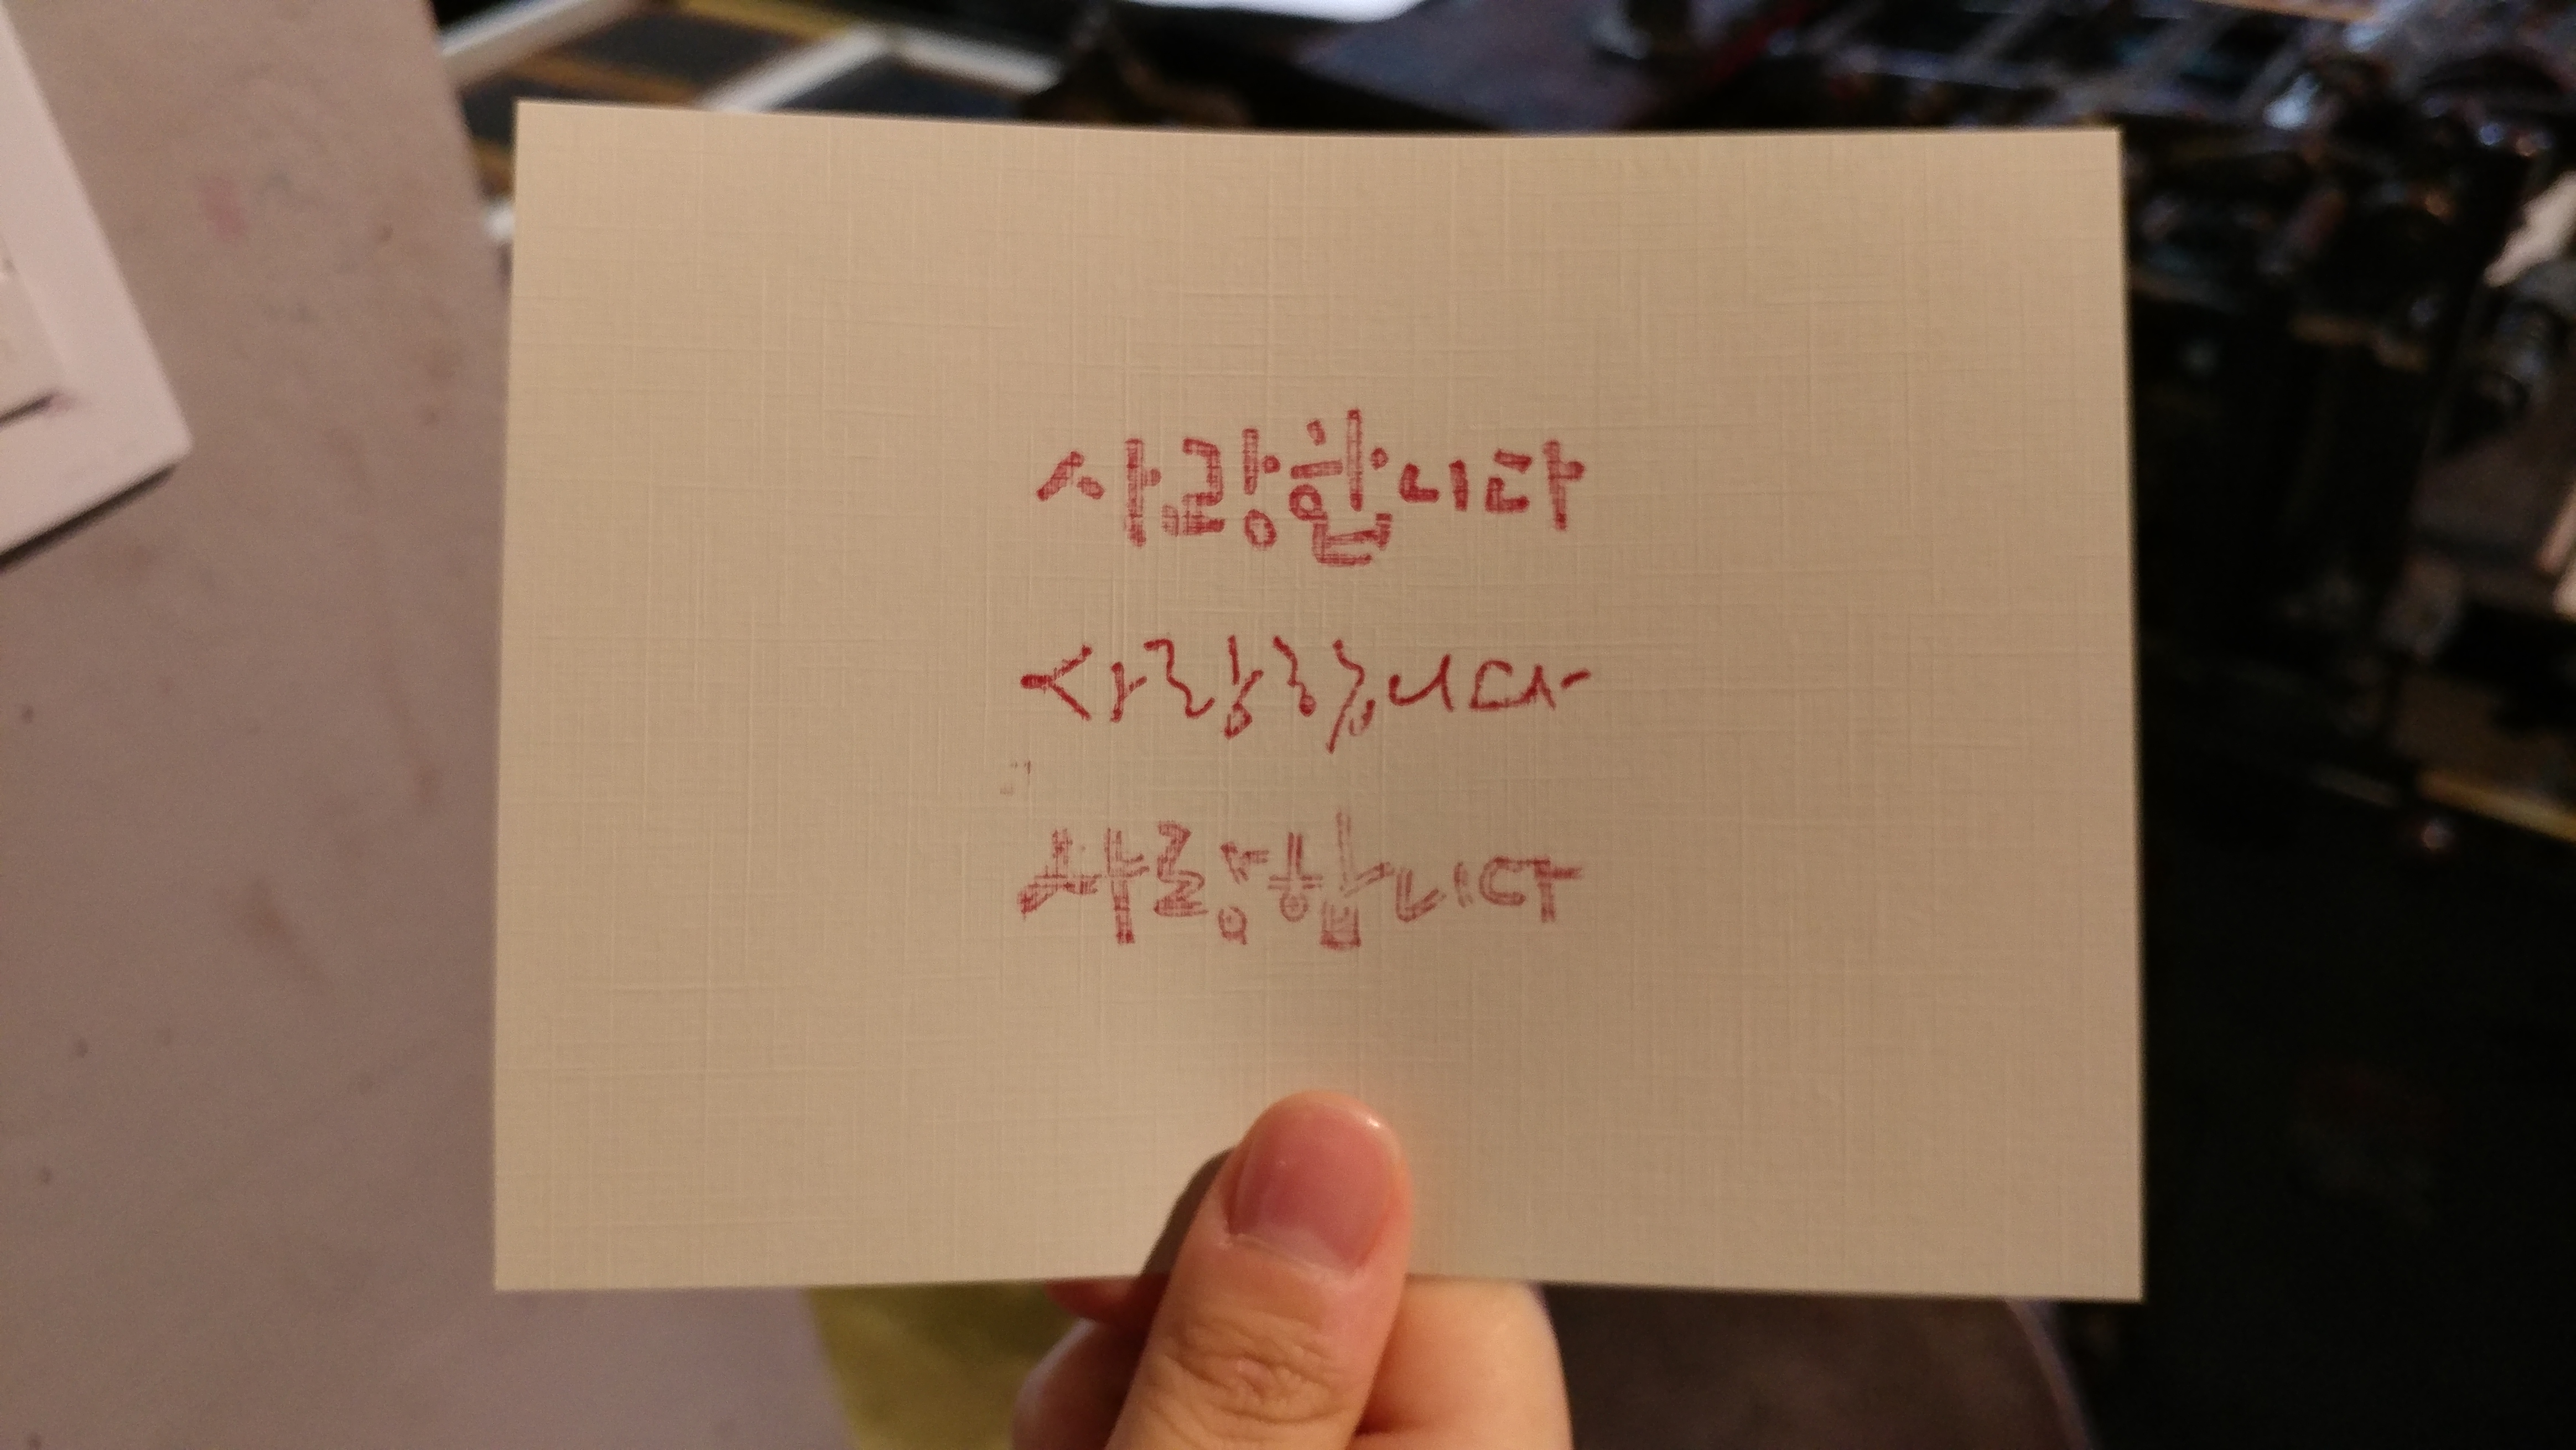 사랑합니다
사랑합니다
사랑합니다